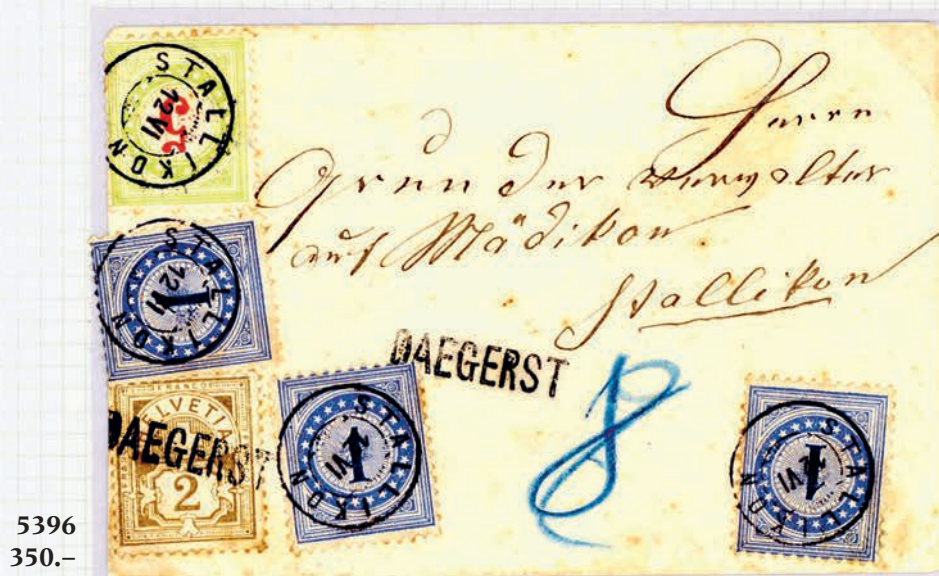 STALLIKON
12 VI
5
Herrn
Grunder Verwalter
auf Mädikon
Stallikon
STALLIKON
12 VI
1
DAEGERST
FRANCO
HELVETIA
2
DAEGERST
STALLIKON
VI
1
8
STALLIKON
VI
1
5396
350.–